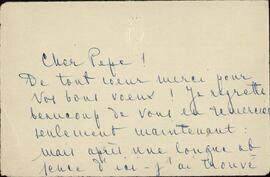 Cher Pepe !
De tout cœur merci pour
vos bons voeux ! Je regrette
beaucoup de vous en remercier
seulement maintenant :
mais après une longue ab
sence d'ici - j'ai trouvé